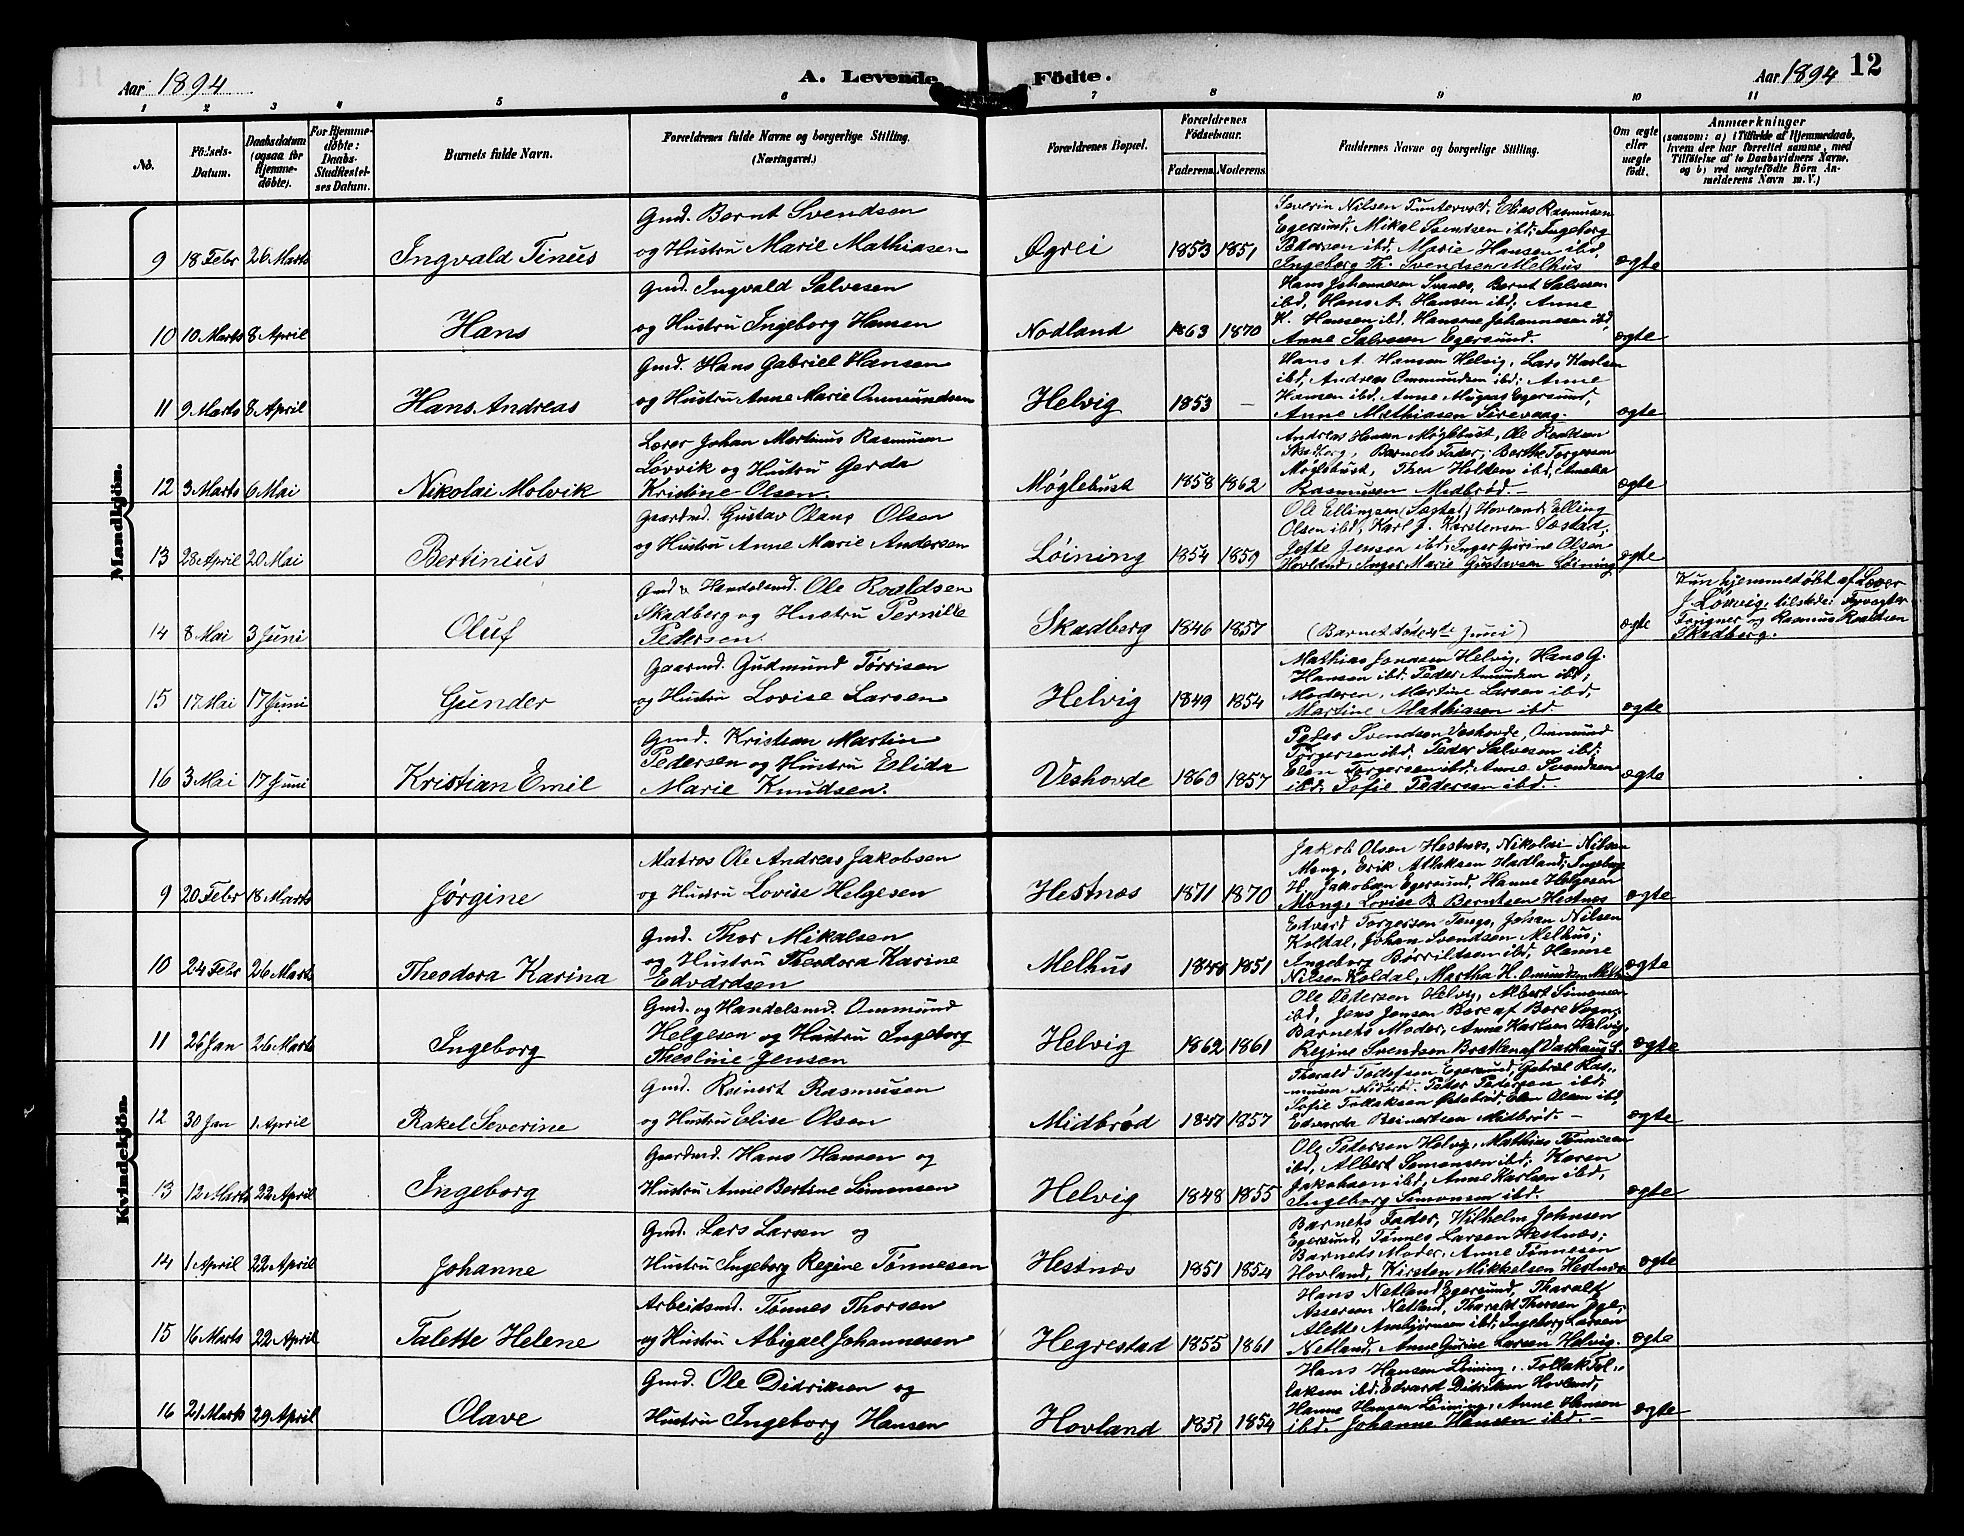 Aar 1894
A. Levende Födte.
Aar 1894 12
1 2 3 4 5 6 7 8 9 10 11
No.
Födsels-Datum.
Daabsdatum (ogsaa for Hjemmedöbte).
For Hjemmedöbte: Daabs-Stadfæstelses Datum.
Barnets fulde Navn.
Forældrenes fulde Navne og borgerlige Stilling. (Næringsvei.)
Forældrenes Bopæl.
Forældrenes Födselsaar. Faderens. Moderens.
Faddernes Navne og borgerlige Stilling.
Om ægte eller uægte født.
Anmærkninger
(saasom: a) i Tilfælde af Hjemmedaab, hvem der har forrettet samme, med Tilföielse af to Daabsvidners Navne, og b) ved uægtefödte Börn Anmelderens Navn m. V.)
Mandkjön.
9 18 Febr 26 Marts Ingvald Tinius
Gmd. Bernt Svendsen
og Hustru Marie Mathiasen
Øgrei 1853 1851
Severin Nilsen Tuntervold, Elias Rasmussen
Egersund, Mikal Svendsen ibd; Ingeborg
Pedersen ibd, Marie Hansen ibd,
Ingeborg Th. Svendsen Melhus
ægte
10 10 Marts 8 April Hans
Gmd. Ingvald Salvesen
og Hustru Ingeborg Hansen
Nodland 1863 1870
Hans Johannesen Svanes, Bernt Salvesen
ibd, Hans A. Hansen ibd; Anne
K. Hansen ibd, Hansine Johannesen ibd,
Anne Salvesen Egersund.
ægte
11 9 Marts 8 April Hans Andreas
Gmd. Hans Gabriel Hansen
og Hustru Anne Marie Ommundsen
Helvig 1853 -
Hans A. Hansen Helvig, Lars Karlsen
ibd, Andreas Ommundsen ibd; Anne
Hansen ibd, Anne Mogaas Egersund,
Anne Mathiasen Sirevaag.
ægte
12 3 Marts 6 Mai Nikolai Molvik
Lærer Johan Martinus Rasmusen
Løvvik og Hustru Gerda
Kristine Olsen.
Møglebust 1858 1862
Andreas Hansen Møglebust, Ole Roaldsen
Skadberg, Barnets Fader; Berthe Torgersen
Møglebust, Thea Holden ibd, Amalia
Rasmussen Midbrød. -
ægte
13 28 April 20 Mai Bertinius
Gaardmd. Gustav Olaus Olsen
og Hustru Anne Marie Andersen
Løining 1854 1859
Ole Ellingsen Hovland, Elling
Olsen ibd, Karl J. Karstensen Sæstad,
Jette Jensen ibd, Inger Gurine Olsen
Hovland, Inger Marie Gustavsen Løining
ægte
14 8 Mai 3 Juni Oluf
Gmd & Handelsmd. Ole Roaldsen
Skadberg og Hustru Pernille
Pedersen.
Skadberg 1846 1857
(Barnet døde 4de Juni)
ægte
Kun hjemmedøbt af Lærer
J. Løvvig, tilstede: Fyrvogter
Fongner og Rasmus Roaldsen
Skadberg.
15 17 Mai 17 Juni Gunder
Gaarmd. Gudmund Tørrisen
og Hustru Lovise Larsen
Helvig 1849 1854
Mathias Jonasen Helvig, Hans G.
Hansen ibd, Peder Amundsen ibd;
Moderen, Martine Larsen ibd.
Martine Mathiasen ibd.
ægte
16 3 Mai 17 Juni Kristian Emil
Gmd. Kristian Martin
Pedersen og Hustru Elida
Marie Knudsen.
Veshovde 1860 1857
Peder Svendsen Veshovde, Ommund
Torgersen ibd, Peder Salvesen ibd;
Elen Torgersen ibd, Anne Svendsen
ibd, Sofie Pedersen ibd. -
ægte
Kvindekjön.
9 20 Febr 18 Marts Jørgine
Matros Ole Andreas Jakobsen
og Hustru Lovise Helgesen
Hestnæs 1871 1870
Jakob Olsen Hestnæs, Nikolai Nilsen
Mong, Erik Atlaksen Hadland; Ingeborg
H. Jakobsen Egersund, Hanne Helgesen
Mong, Lovise B. Berntsen Hestnæs
ægte
10 24 Febr 26 Marts Theodora Karina
Gmd. Thor Mikalsen
og Hustru Theodora Karine
Edvardsen
Melhus 1848 1851
Edvard Torgersen Tengs, Johan Nilsen
Koldal, Johan Svendsen Melhus;
Ingeborg Børriltsen ibd, Hanne
Nilsen Koldal, Martha H. Omundsen
ægte
11 26 Jan 26 Marts Ingeborg
Gmd. og Handelsmd. Ommund
Helgesen og Hustru Ingeborg
Theoline Jensen
Helvig 1862 1861
Ole Pedersen Helvig, Albert Simonsen
ibd, Jens Jensen Bore af Bore Sogn;
Barnets Moder, Anne Karlsen Helvig,
Regine Svendsen Bratlen af Varhaug S.
ægte
12 30 Jan 1 April Rakel Severine
Gmd. Reinert Rasmusen
og Hustru Elise Olsen
Midbrød 1847 1857
Tharald Tollefsen Egersund, Gabriel Rasmusen
Midbrød, Peter Petersen ibd;
Sofie Tollaksen Østebrød, Elen Olsen ibd,
Edvarda Reinertsen Midbrød. -
ægte
13 12 Marts 22 April Ingeborg
Gaardmd. Hans Hansen og
Hustru Anne Bertine Simonsen
Helvig 1848 1855
Ole Petersen Helvig, Mathias Tønnesen
ibd, Albert Simonsen ibd; Karen
Jakobsen ibd, Anne Karlsen ibd,
Ingeborg Simonsen ibd.
ægte
14 1 April 22 April Johanne
Gmd. Lars Larsen og
Hustru Ingeborg Regine Tønnesen
Hestnæs 1851 1854
Barnets Fader, Wilhelm Johnsen
Egersund, Tønnes Larsen Hestnæs;
Barnets Moder, Anne Tønnesen
Hovland, Kirsten Mikkelsen Hestnæs
ægte
15 16 Marts 22 April Talette Helene
Arbeidsmd. Tønnes Thorsen
og Hustru Abigael Johannesen
Hegrestad 1855 1861
Hans Netland Egersund, Tharald
Asserson Netland, Tharald Thorsen Ege,
Alette Asbjørnsen ibd, Ingeborg Larsen
Netland, Anne Gurine Larsen Helvig.
ægte
16 21 Marts 29 April Olave
Gmd. Ole Didriksen og
Hustru Ingeborg Hansen
Hovland 1851 1854
Hans Hansen Løining, Tollak Tollaksen
ibd, Edvard Didriksen Hovland,
Hanne Hansen Løining, Anne Hansen
ibd. Johanne Hansen ibd -
ægte